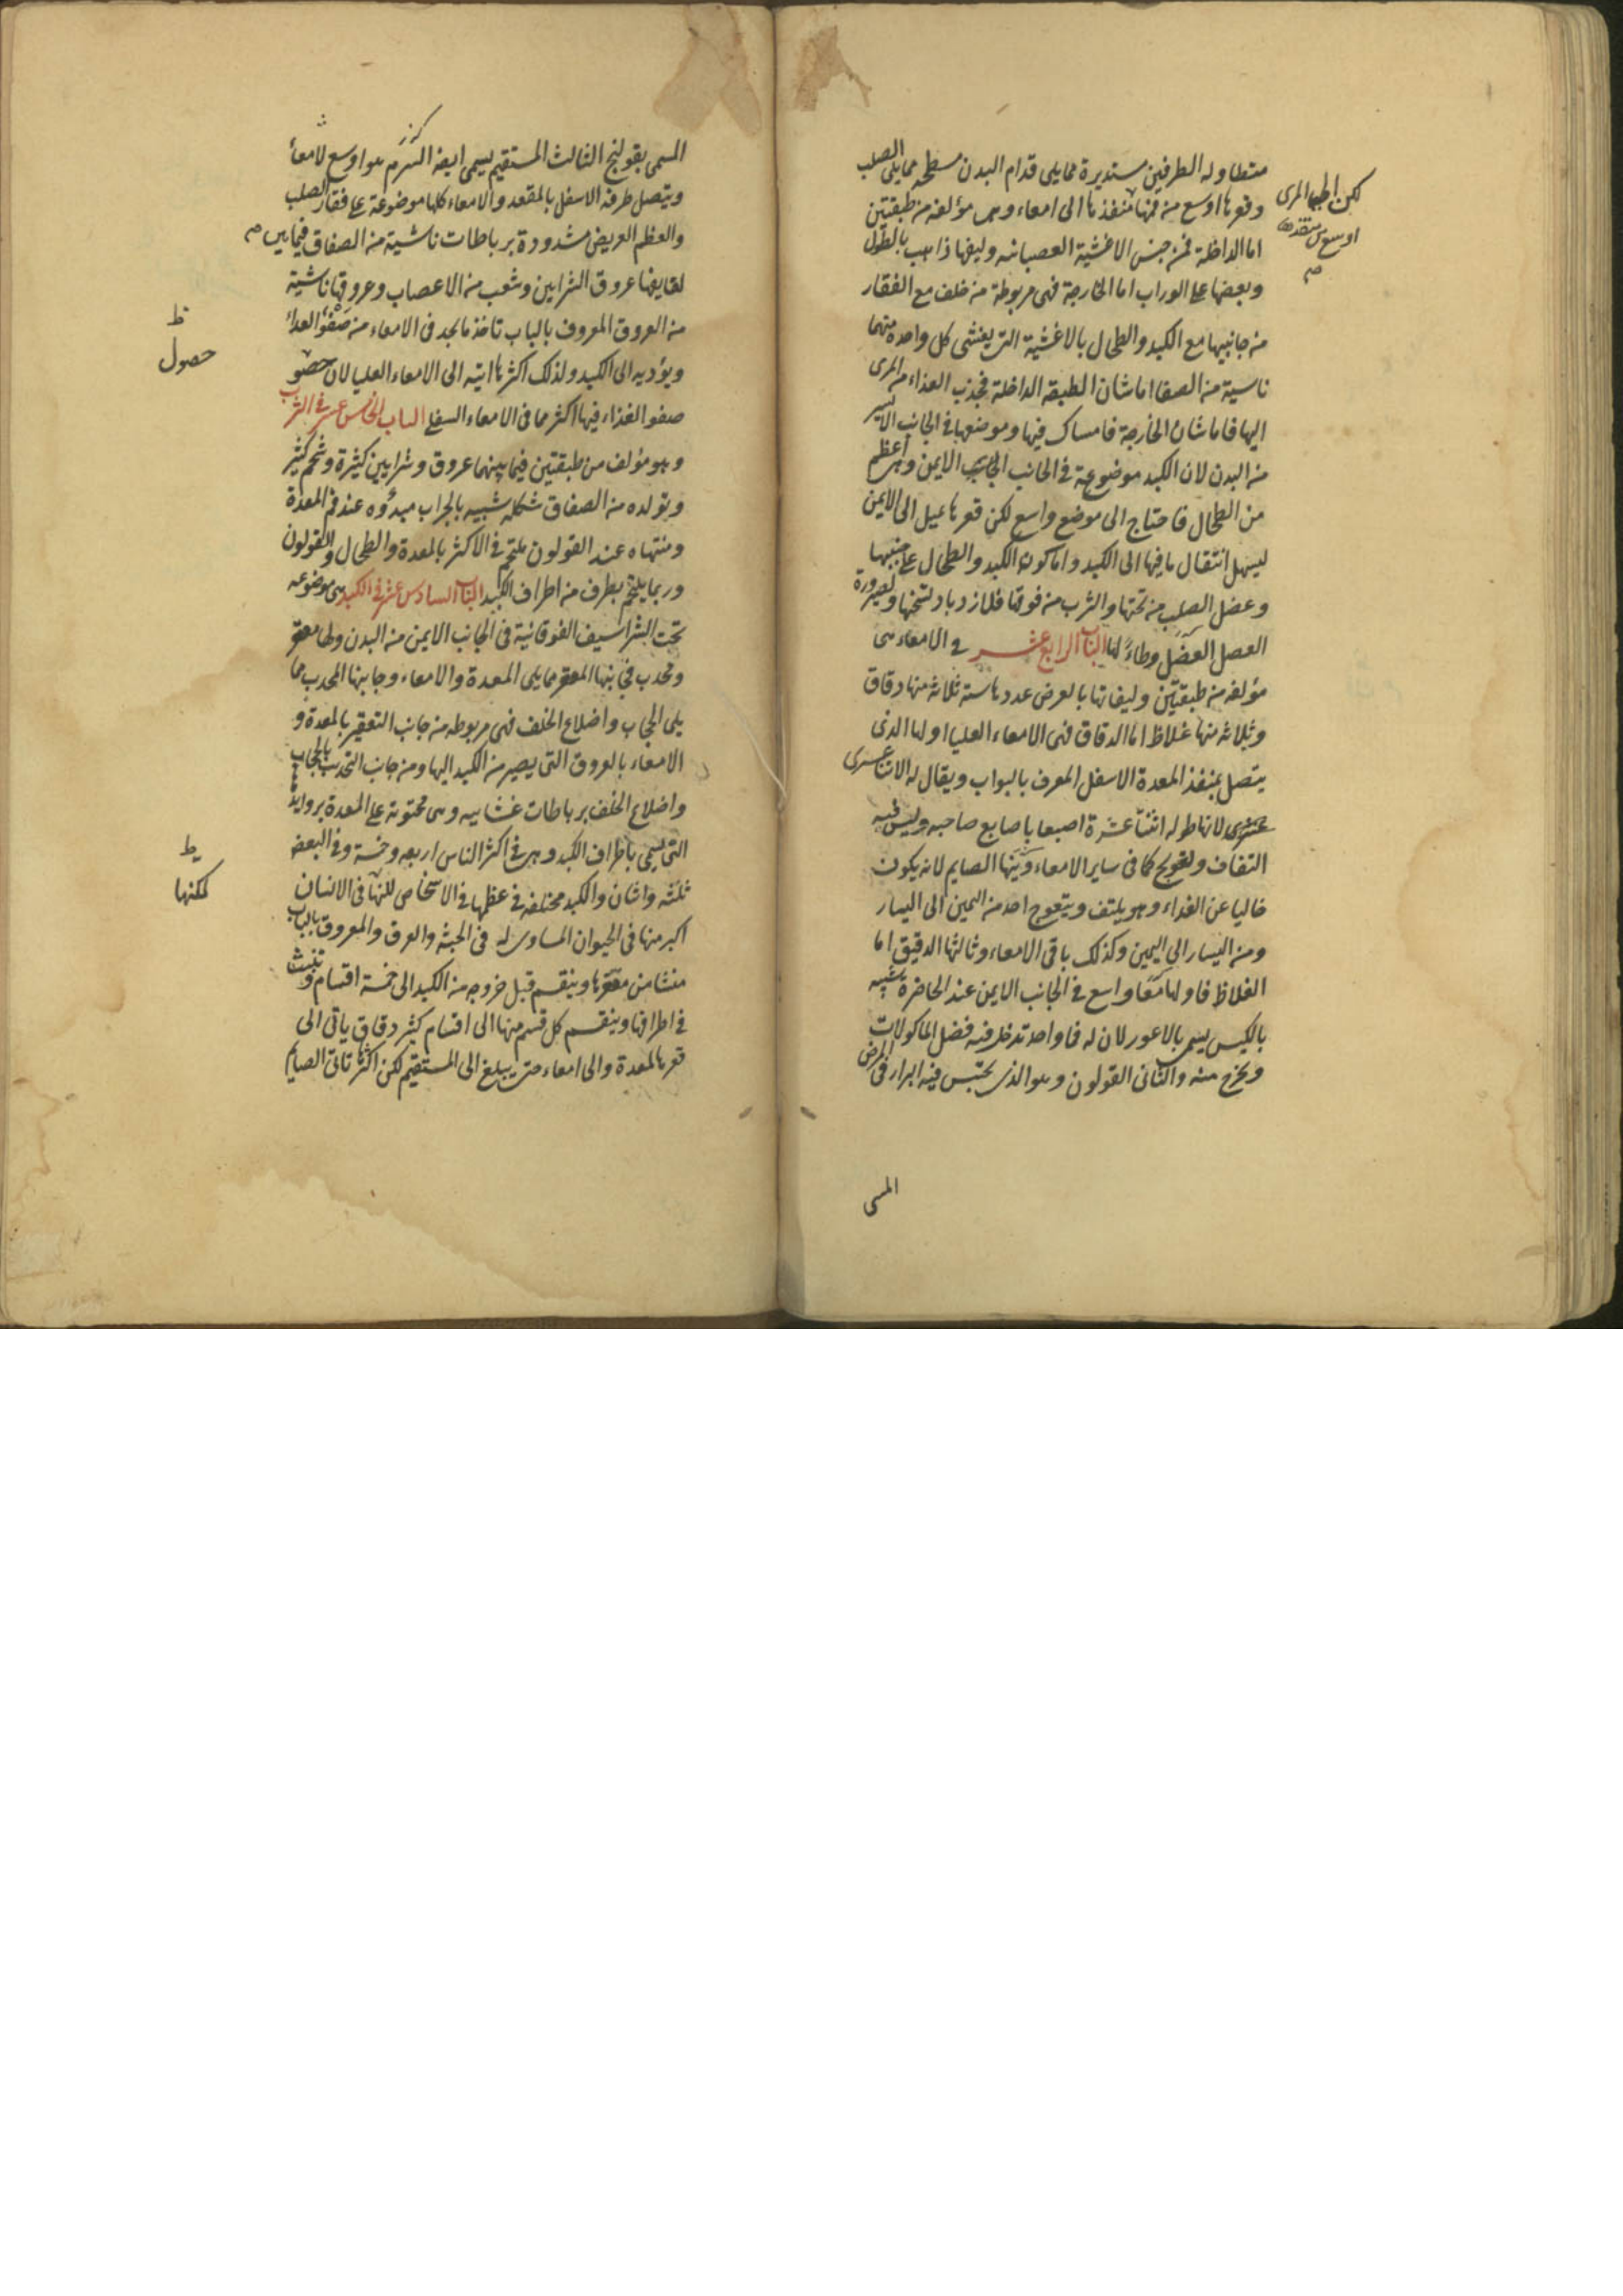 متطاوله الطرفين مستديرة مما يلى قدام البدن مسطحه مما يلى الصلب
وقعرها اوسع من فمها منفذها الى امعاء وهى مؤلفه من طبقتين
لكن اوسع من منفذها
اما الداخلة فمن جنس الاغشية العصبانيه وليفها ذاهب بالطول
وبعضها على الوراب اما الخارجة فهى مربوطة من خلف مع الفقار
من جانبيها مع الكبد والطحال بالاغشية التى يغشى كل واحدة منهما
ناسية من الصفا اما شان الطبقه الداخلة فجذب الغذاء من المرى
اليها فاما شان الخارجة فامساك فيها وموضعها فى الجانب الايسر
من البدن لان الكبد موضوعة فى الجانب الايمن وهى اعظم
من الطحال فاحتاج الى موضع واسع لكن قعرها يميل الى الايمن
ليسهل انتقال ما فيها الى الكبد واما كون الكبد والطحال على جنبيها
وعضل الصلب من تحتها والثرب من فوقها فلازدياد تسخنها ولصيرورة
العضل وطاءً لها الباب الرابع عشر فى الامعاء هى
مؤلفه من طبقتين وليفاتها بالعرض عددها ستة ثلاثه منها دقاق
وثلاثه منها غلاظ اما الدقاق فهى الامعاء العليا اولها الذى
يتصل بمنفذ المعدة الاسفل المعرف بالبواب ويقال له الاثنا عسرى
لانها طوله اثنتا عشرة اصبعا باصابع صاحبه وليس فيه
التفاف وتعويج كما فى ساير الامعاء وثينها الصايم لانه يكون
خاليا عن الغداء وهو يلتف ويتعوج احد من اليمين الى اليسار
ومن اليسار الى اليمين وكذلك باقى الامعاء وثالثها الدقيق اما
الغلاظ فاولها معًا واسع فى الجانب الايمن عند الحاضرة شبيه
بالكيس يسمى بالاعور لان له فما واحد تدخل فيه فضل الماكولات
ويخرج منه والثانى القولون وهو الذى يحتبس فيه البراز فى المرض
المسمى
المسمى بقولنج الثالث المستقيم يسمى ايضا السرم هو اوسع الامعاء
ويتصل طرفه الاسفل بالمقعد والامعاء كلها موضوعة على فقار الصلب
والعظم العريض مشدودة برباطات ناشية من الصفاق فيما بين
لفايفها عروق الشرايين وشعب من الاعصاب وعروقها ناشية
من العروق المعروف بالباب تاخذ ما تجد فى الامعاء من صفو الغداء
ويؤديه الى الكبد ولذلك اكثرها اتيه الى الامعاء العليا لان حصو
ظ
حصول
صفو الغذاء فيها اكثر مما فى الامعاء السفلى الباب الخامس عسر فى الثرب
وهو مؤلف من طبقتين فيما بينهما عروق وشرايين كثيرة وشحم كثير
وتولده من الصفاق شكله شبيه بالجراب مبدؤه عند فم المعدة
ومنتهاه عند القولون ملتحم فى الاكثر بالمعدة والطحال والقولون
وربما يلتحم بطرف من اطراف الكبد الباب السادس عشر فى الكبد هى موضوعه
تحت الشراسيف الفوقانية فى الجانب الايمن من البدن ولها مقعر
ومحدب فجانبها المقعر مما يلى المعدة والامعاء وجابنها المحدب مما
يلى الحجاب واضلاع الخلف فهى مربوطه من جانب التقعير بالمعدة و
الامعاء بالعروق التى يصير من الكبد اليها ومن جانب التحديب بالحجاب
واضلاع الخلف برباطات غشاييه وهى محتوية على المعدة بزوايدها
التى يسمى باطراف الكبد وهى فى اكثر الناس اربعه وخمسة وفى البعض
ثلثه واثنان والكبد مختلفه فى عظمها فى الاشخاص للنها فى الانسان
ط
لكنها
اكبر منها فى الحيوان المساوى له فى الجثه والعرق والمعروق بالباب
منشا من مقعرها وينقسم قبل خروجه من الكبد الى خمسة اقسام وتنبث
فى اطرافها وينقسم كل قسم منها الى اقسام كثير دقاق ياتى الى
قعر المعدة والى امعاء حتى يبلغ الى المستقيم لكن اكثرها تاتى الصايم